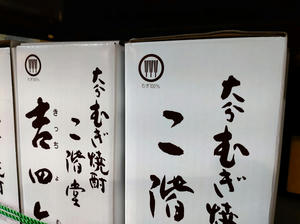 むぎ100%
大分むぎ焼酎
二階堂
きっちょ
吉四
むぎ100%
大分むぎ
二階
焼酎